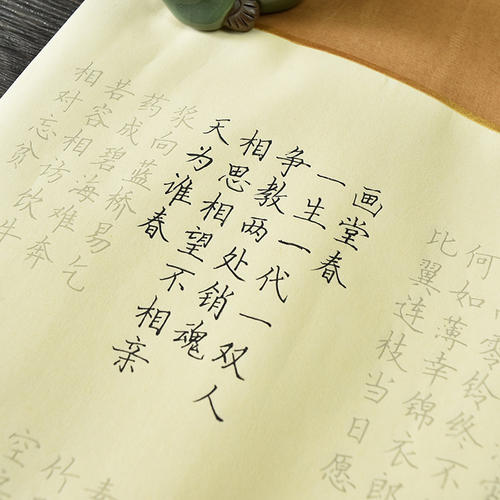 零铃终不
何如薄幸锦衣郎
比翼连枝当日愿
画堂春
一生一代一双人
争教两处销魂
相思相望不相亲
天为谁春
浆向蓝桥易乞
药成碧海难奔
若容相访饮牛
相对忘贫
春
竹
空